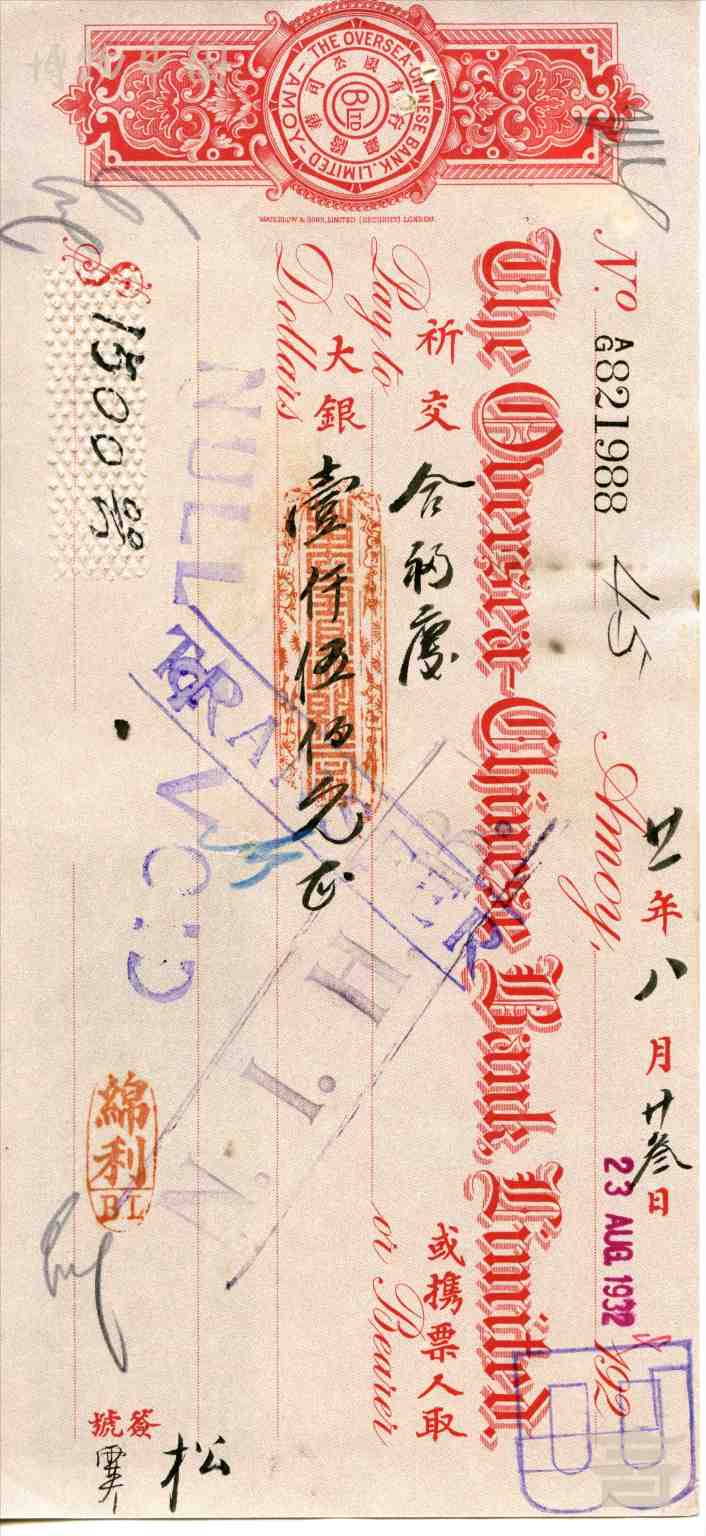 THE OVERSEA-CHINESE BANK, LIMITED
-AMOY-
BLTD
WATERLOW & SONS, LIMITED (SECURITY) LONDON.
Nº A/G 821988
45
Amoy,
廿一年八月廿叁日
23 AUG 1932
192
The Oversea-Chinese Bank, Limited.
祈交 合
Pay to
或攜票人取
or Bearer
大銀 壹仟伍佰元正
Dollars
NULL
TRANSFER
N.I.H.
$ 1500
綿利
BL
簽號
松